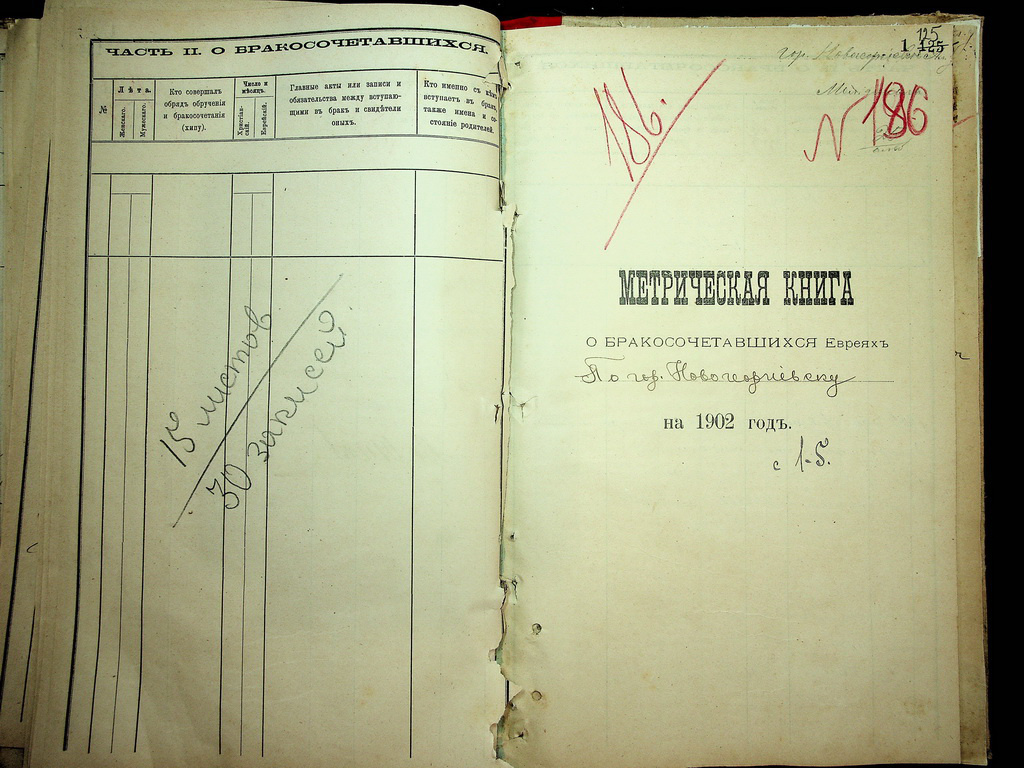 ЧАСТЬ II. О БРАКОСОЧЕТАВШИХСЯ.
№
Лѣта.
Женскаго.
Мужескаго.
Кто совершалъ
обрядъ обрученія
и бракосочетанія
(хипу).
Число и
мѣсяцъ.
Христіан-
скій.
Еврейскій.
Главные акты или записи и
обязательства между вступаю-
щими въ бракъ и свидѣтели
оныхъ.
Кто именно съ кѣмъ
вступаетъ въ бракъ,
также имена и со-
стояніе родителей.
15 листов
30 записей
125
1 125
гор.
186.
N 186
МЕТРИЧЕСКАЯ КНИГА
О БРАКОСОЧЕТАВШИХСЯ Евреяхъ
По гор. Новогеоргіевску
на 1902 годъ.
с 1-5.